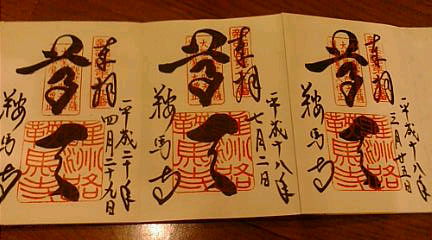 奉拝
平成十八年
三月廿五日
尊天
鞍馬寺
奉拝
平成十八年
七月二日
尊天
鞍馬寺
奉拝
平成二十年
四月二十九日
尊天
鞍馬寺